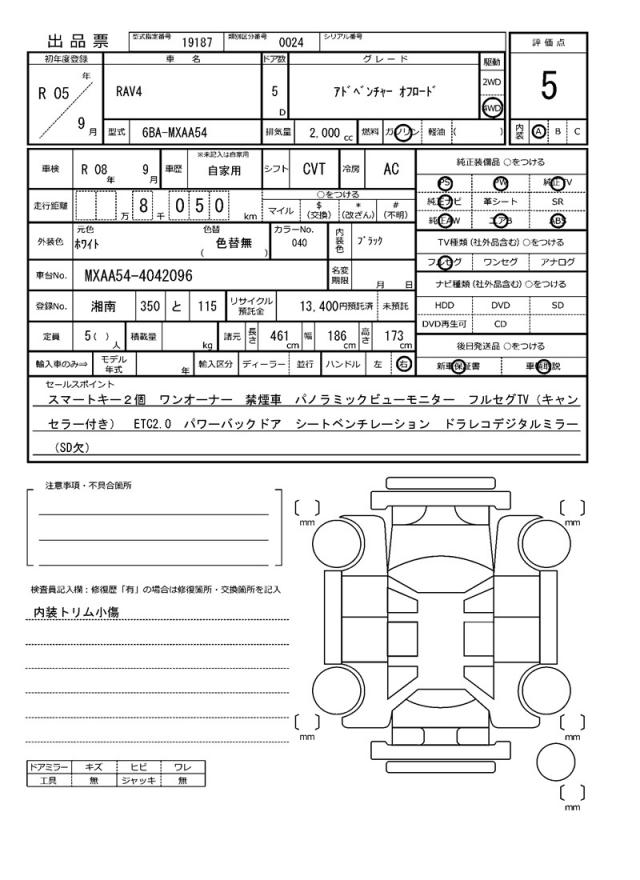 出品票 型式指定番号 19187 類別区分番号 0024 シリアル番号
評価点
5
初年度登録 車名 ドア数 グレード 駆動
R 05 年 RAV4 5 D アドベンチャー オフロード 2WD
9 月 4WD
型式 6BA-MXAA54 排気量 2,000 cc 燃料 ガソリン 軽油 ( )
内装 A B C
車検 R 08 年 9 月 車歴 ※未記入は自家用 自家用 シフト CVT 冷房 AC
走行距離 万 8 千 0 5 0 km
○をつける
マイル $ (交換) * (改ざん) # (不明)
外装色 元色 ホワイト 色替 ( 色替無 ) カラーNo. 040 内装色 ブラック
車台No. MXAA54-4042096 名変期限 月 日
登録No. 湘南 350 と 115 リサイクル預託金 13,400円預託済 未預託
定員 5( ) 人 積載量 kg 諸元 長さ 461 cm 幅 186 cm 高さ 173 cm
輸入車のみ⇒ モデル年式 年 輸入区分 ディーラー 並行 ハンドル 左 右
純正装備品 ○をつける
PS PW 純正TV
純正ナビ 革シート SR
純正AW エアB ABS
TV種類 (社外品含む) ○をつける
フルセグ ワンセグ アナログ
ナビ種類 (社外品含む) ○をつける
HDD DVD SD
DVD再生可 CD
後日発送品 ○をつける
新車保証書 車輌取説
セールスポイント
スマートキー2個 ワンオーナー 禁煙車 パノラミックビューモニター フルセグTV（キャン
セラー付き） ETC2.0 パワーバックドア シートベンチレーション ドラレコデジタルミラー
（SD欠）
注意事項・不具合箇所
検査員記入欄：修復歴「有」の場合は修復箇所・交換箇所を記入
内装トリム小傷
ドアミラー キズ ヒビ ワレ
工具 無 ジャッキ 無
mm
mm
mm
mm
mm